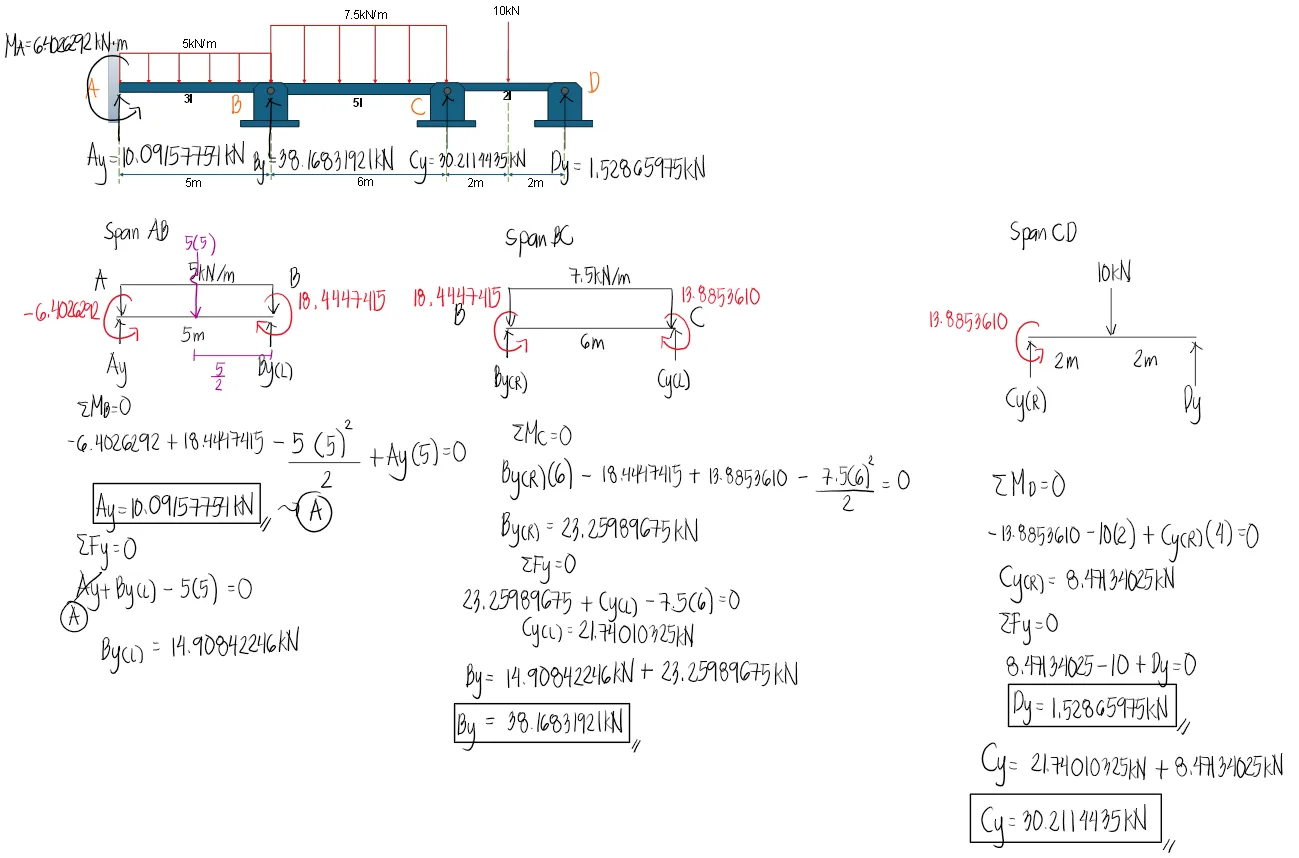 7.5kN/m
10kN
MA=6.4026292kN·m
5kN/m
A
3I
B
5I
C
2I
D
Ay=10.09157751kN
By=38.16831921kN
Cy=30.2114435kN
Dy=1.52865975kN
5m
6m
2m
2m
Span AB
5(5)
5kN/m
A
B
-6.4026292
18.4447415
5m
Ay
5/2
By(L)
ΣMB=0
-6.4026292 + 18.4447415 - 5(5)²/2 + Ay(5)=0
Ay=10.09157751kN // → A
ΣFy=0
Ay+By(L) - 5(5) =0
A
By(L) = 14.90842246kN
Span BC
7.5kN/m
18.4447415
13.8853610
B
C
6m
By(R)
Cy(L)
ΣMC=0
By(R)(6) - 18.4447415 + 13.8853610 - 7.5(6)²/2 = 0
By(R) = 23.25989675kN
ΣFy=0
23.25989675 + Cy(L) - 7.5(6)=0
Cy(L) = 21.74010325kN
By= 14.90842246kN + 23.25989675kN
By = 38.16831921kN //
Span CD
10kN
13.8853610
2m
2m
Cy(R)
Dy
ΣMD=0
-13.8853610 -10(2) + Cy(R)(4)=0
Cy(R)= 8.47134025kN
ΣFy=0
8.47134025-10 + Dy=0
Dy= 1.52865975kN //
Cy= 21.74010325kN + 8.47134025kN
Cy = 30.2114435kN //